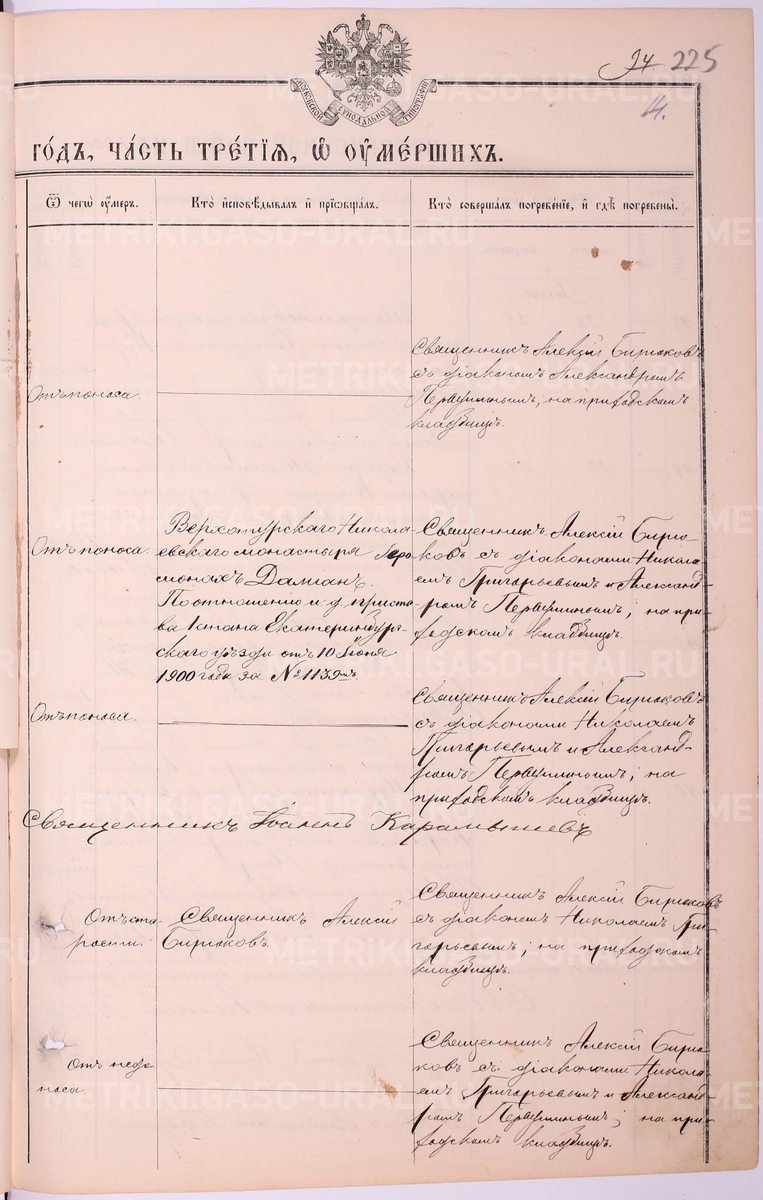 24. 225
14.
МОСКОВСКОЙ СѴНОДАЛЬНОЙ ТИПОГРАФІИ
ГО́ДЪ, ЧА́СТЬ ТРЕ́ТІЯ, Ѡ҆ ОУ҆МЕ́РШИХЪ.
Ѿ чегѡ̀ оу҆́меръ.
Кто̀ и҆сповѣ́дывалъ и҆ прїѡбща́лъ.
Кто̀ соверша́лъ погребе́нїе, и҆ гдѣ̀ погребены̀.
Отъ поноса.
Священникъ Алексій Бирюковъ
съ діакономъ Александромъ
Первушинымъ, на приходскомъ
кладбищѣ.
Отъ поноса.
Верхотурскаго Никола-
евскаго монастыря Іеро
монахъ Даміанъ.
По отношенію и. д. приста-
ва 1 стана Екатеринбург-
скаго уѣзда отъ 10 Іюня
1900 года за № 1139мъ.
Священникъ Алексій Бирю-
ковъ съ діаконами Никола
емъ Григорьевымъ и Александ-
ромъ Первушинымъ; на при-
ходскомъ кладбищѣ.
Отъ поноса.
Священникъ Алексій Бирюковъ
съ діаконами Николаемъ
Григорьевымъ и Александ-
ромъ Первушинымъ; на
приходскомъ кладбищѣ.
Священникъ Іоаннъ Карамышевъ
Отъ ста-
рости.
Священникъ Алексій
Бирюковъ.
Священникъ Алексій Бирюковъ
съ діакономъ Николаемъ Гри-
горьевымъ; на приходскомъ
кладбищѣ.
Отъ недо
носа.
Священникъ Алексій Бирю-
ковъ съ діаконами Никола-
емъ Григорьевымъ и Александ-
ромъ Первушинымъ; на при-
ходскомъ кладбищѣ.
METRIKI.GASO-URAL.RU